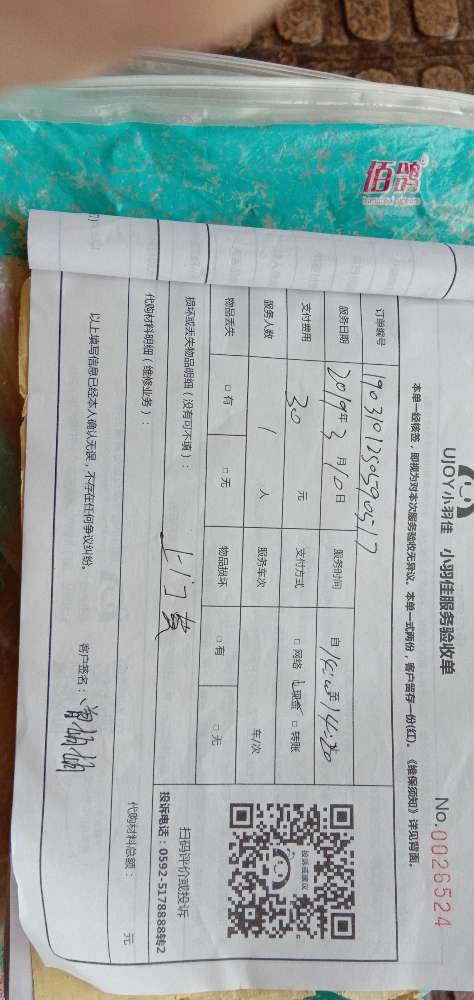 佰鸽
UJOY小羽佳 小羽佳服务验收单
No.0026524
本单一经核签，即视为对本次服务验收无异议。本单一式两份，客户留存一份(红)。《维保须知》详见背面。
订单编号 1903101250590517
服务日期 2019年3月10日 服务时间 自 至14:20
支付费用 30 元 支付方式 □网络 现金 □转账
服务人数 1 人 服务车次 车/次
物品丢失 □有 □无 物品损坏 □有 □无
损坏或丢失物品明细（没有可不填）：
上门费
投诉或建议
扫码评价或投诉
投诉电话：0592-5178888转2
代购材料明细（维修业务）：
代购材料总额： 元
以上填写信息已经本人确认无误，不存在任何争议纠纷。
客户签名：